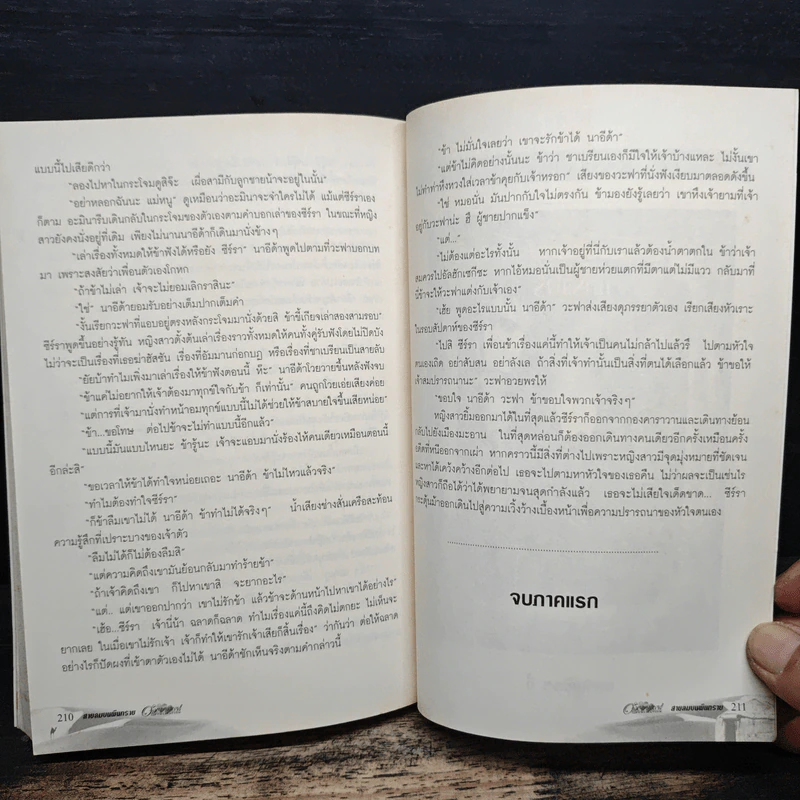 แบบนี้ไปเสียดีกว่า
“ลองไปหาในกระโจมดูสิจ๊ะ เผื่อสามีกับลูกชายน้าจะอยู่ในนั้น”
“อย่าหลอกฉันนะ แม่หนู” ดูเหมือนว่าอะมีนาจะจำใครไม่ได้ แม้แต่ซีร์ราเอง
ก็ตาม อะมีนารีบเดินกลับในกระโจมของตัวเองตามคำบอกเล่าของซีร์รา ในขณะที่หญิง
สาวยังคงนั่งอยู่ที่เดิม เพียงไม่นานนาอีด้าก็เดินมานั่งข้างๆ
“เล่าเรื่องทั้งหมดให้ข้าฟังได้หรือยัง ซีร์รา” นาอีด้าพูดไปตามที่วะฟาบอกบท
มา เพราะสงสัยว่าเพื่อนตัวเองโกหก
“ถ้าข้าไม่เล่า เจ้าจะไม่ยอมเลิกราสินะ”
“ใช่” นาอีด้ายอมรับอย่างเต็มปากเต็มคำ
“งั้นเรียกวะฟาที่แอบอยู่ตรงหลังกระโจมมานั่งด้วยสิ ข้าขี้เกียจเล่าสองสามรอบ”
ซีร์ราพูดขึ้นอย่างรู้ทัน หญิงสาวตั้งต้นเล่าเรื่องราวทั้งหมดให้คนทั้งคู่รับฟังโดยไม่ปิดบัง
ไม่ว่าจะเป็นเรื่องที่เธอฆ่าฮัสซัน เรื่องที่อัมมานก่อกบฏ หรือเรื่องที่ซาเบรียนเป็นสายลับ
“ยัยบ้าทำไมเพิ่งมาเล่าเรื่องให้ข้าฟังตอนนี้ ห๊ะ” นาอีด้าโวยวายขึ้นหลังฟังจบ
“ข้าแค่ไม่อยากให้เจ้าต้องมาทุกข์ใจกับข้า ก็เท่านั้น” คนถูกโวยเอ่ยเสียงค่อย
“แต่การที่เจ้ามานั่งทำหน้าอมทุกข์แบบนี้ไม่ได้ช่วยให้ข้าสบายใจขึ้นเสียหน่อย”
“ข้า...ขอโทษ ต่อไปข้าจะไม่ทำแบบนี้อีกแล้ว”
“แบบนี้มันแบบไหนยะ ข้ารู้นะ เจ้าจะแอบมานั่งร้องไห้คนเดียวเหมือนตอนนี้
อีกล่ะสิ”
“ขอเวลาให้ข้าได้ทำใจหน่อยเถอะ นาอีด้า ข้าไม่ไหวแล้วจริง”
“ทำไมต้องทำใจซีร์รา”
“ก็ข้าลืมเขาไม่ได้ นาอีด้า ข้าทำไม่ได้จริงๆ” น้ำเสียงช่างสั่นเครือสะท้อน
ความรู้สึกที่เปราะบางของเจ้าตัว
“ลืมไม่ได้ก็ไม่ต้องลืมสิ”
“แต่ความคิดถึงเขามันย้อนกลับมาทำร้ายข้า”
“ถ้าเจ้าคิดถึงเขา ก็ไปหาเขาสิ จะยากอะไร”
“แต่... แต่เขาออกปากว่า เขาไม่รักข้า แล้วข้าจะด้านหน้าไปหาเขาได้อย่างไร”
“เฮ้อ...ซีร์รา เจ้านี่น้า ฉลาดก็ฉลาด ทำไมเรื่องแค่นี้ถึงคิดไม่ตกยะ ไม่เห็นจะ
ยากเลย ในเมื่อเขาไม่รักเจ้า เจ้าก็ทำให้เขารักเจ้าเสียก็สิ้นเรื่อง” ว่ากันว่า ต่อให้ฉลาด
อย่างไรก็ปัดผงที่เข้าตาตัวเองไม่ได้ นาอีด้าชักเห็นจริงตามคำกล่าวนี้
210 สายลมบนผืนทราย
“ข้า ไม่มั่นใจเลยว่า เขาจะรักข้าได้ นาอีด้า”
“แต่ข้าไม่คิดอย่างนั้นนะ ข้าว่า ซาเบรียนเองก็มีใจให้เจ้าบ้างแหละ ไม่งั้นเขา
ไม่ทำท่าหึงหวงใส่เวลาข้าคุยกับเจ้าหรอก” เสียงของวะฟาที่นั่งฟังเงียบมาตลอดดังขึ้น
“ใช่ หมอนั่น มันปากกับใจไม่ตรงกัน ข้ามองยังรู้เลยว่า เขาหึงเจ้ายามที่เจ้า
อยู่กับวะฟาน่ะ ฮึ ผู้ชายปากแข็ง”
“แต่...”
“ไม่ต้องแต่อะไรทั้งนั้น หากเจ้าอยู่ที่นี่กับเราแล้วต้องน้ำตาตกใน ข้าว่าเจ้า
สมควรไปอัลฮักเซกีซะ หากไอ้หมอนั่นเป็นผู้ชายห่วยแตกที่มีตาแต่ไม่มีแวว กลับมาที่
นี่ข้าจะให้วะฟาแต่งกับเจ้าเอง”
“เฮ้ย พูดอะไรแบบนั้น นาอีด้า” วะฟาส่งเสียงดุภรรยาตัวเอง เรียกเสียงหัวเราะ
ในรอบสัปดาห์ของซีร์รา
“ไปสิ ซีร์รา เพื่อนข้าเรื่องแค่นี้ทำให้เจ้าเป็นคนไม่กล้าไปแล้วรึ ไปตามหัวใจ
ตนเองเถิด อย่าสับสน อย่าลังเล ถ้าสิ่งที่เจ้าทำนั้นเป็นสิ่งที่ตนได้เลือกแล้ว ข้าขอให้
เจ้าสมปรารถนานะ” วะฟาอวยพรให้
“ขอบใจ นาอีด้า วะฟา ข้าขอบใจพวกเจ้าจริงๆ”
หญิงสาวยิ้มออกมาได้ในที่สุดแล้วซีร์ราก็ออกจากกองคาราวานและเดินทางย้อน
กลับไปยังเมืองมะอาน ในที่สุดหล่อนก็ต้องออกเดินทางคนเดียวอีกครั้งเหมือนครั้ง
อดีตที่หนีออกจากเผ่า หากคราวนี้มีสิ่งที่ต่างไปเพราะหญิงสาวมีจุดมุ่งหมายที่ชัดเจน
และหาได้เคว้งคว้างอีกต่อไป เธอจะไปตามหาหัวใจของเธอคืน ไม่ว่าผลจะเป็นเช่นไร
หญิงสาวก็ถือได้ว่าได้พยายามจนสุดกำลังแล้ว เธอจะไม่เสียใจเด็ดขาด... ซีร์รา
กระตุ้นม้าออกเดินไปสู่ความเวิ้งว้างเบื้องหน้าเพื่อความปรารถนาของหัวใจตนเอง
จบภาคแรก
สายลมบนผืนทราย 211